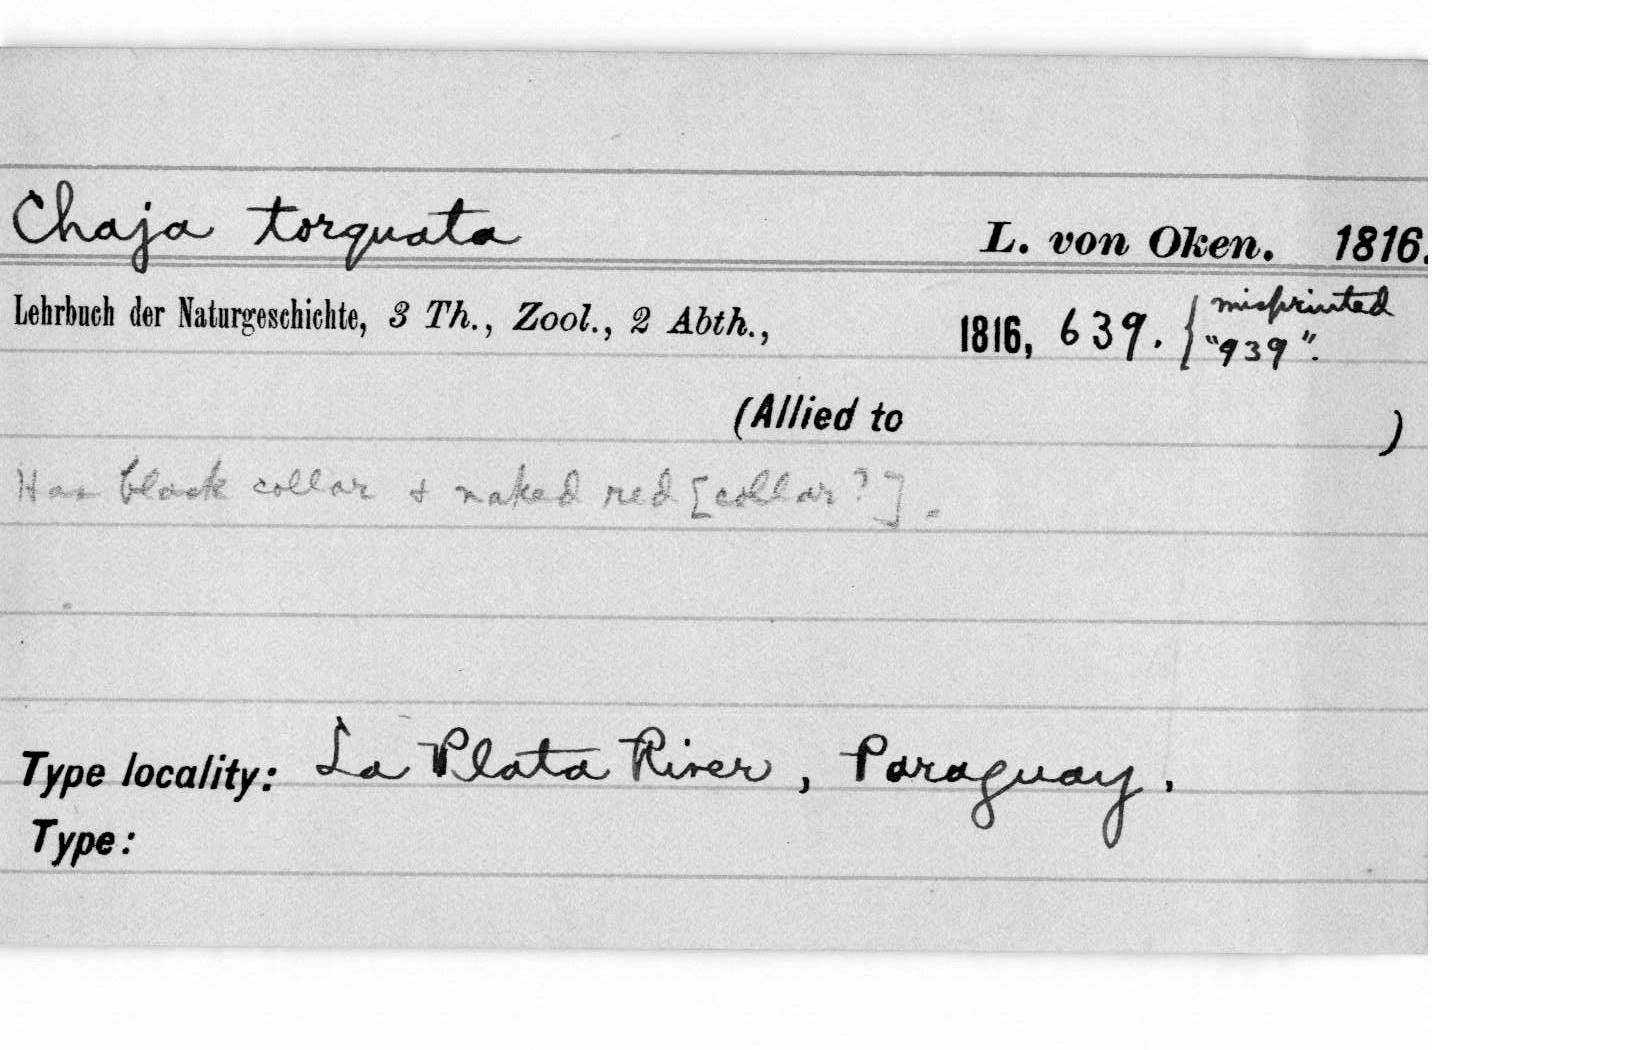 Chaja torquata L. von Oken. 1816.
Lehrbuch der Naturgeschichte, 3 Th., Zool., 2 Abth., 1816, 639. { misprinted
"939".
(Allied to )
Has black collar & naked red [collar?].
Type locality: La Plata River, Paraguay.
Type: